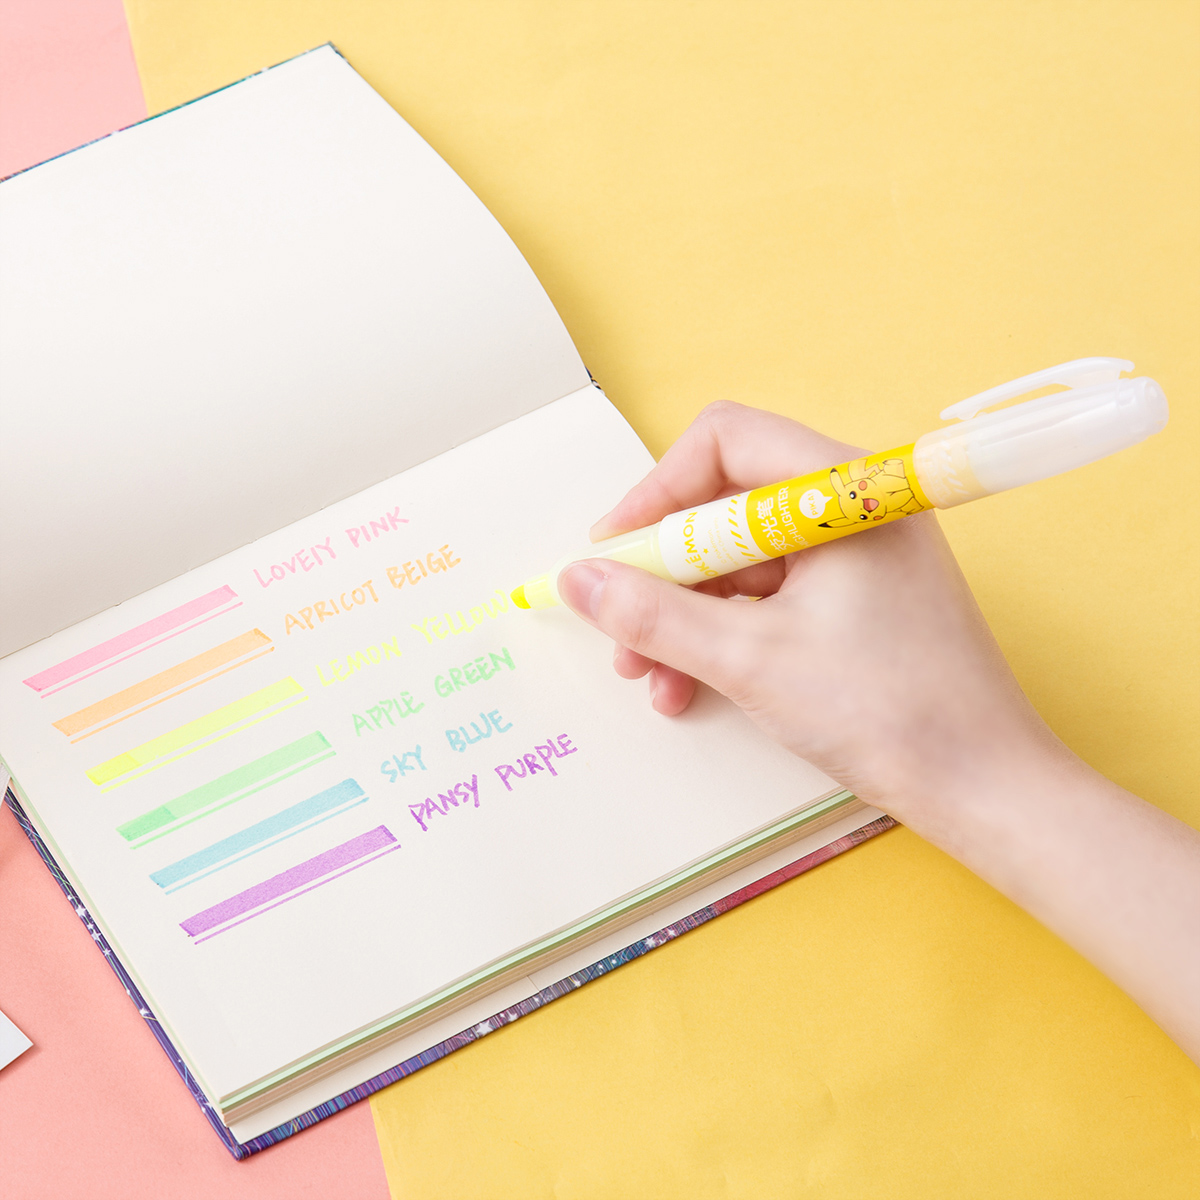 LOVELY PINK
APRICOT BEIGE
LEMON YELLOW
APPLE GREEN
SKY BLUE
PANSY PURPLE
POKÉMON
荧光笔
HIGHLIGHTER